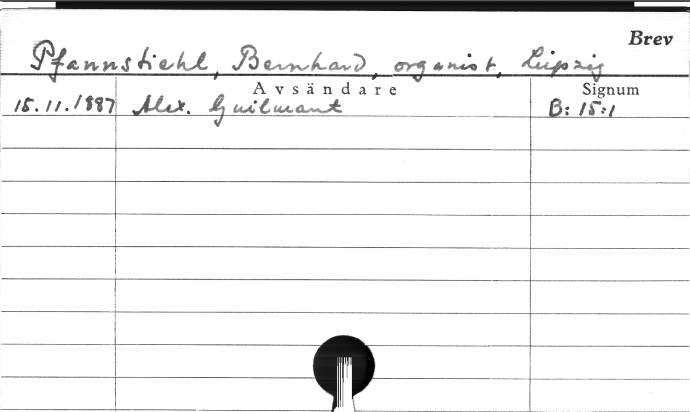 Brev
Pfannstiehl, Bernhard, organist, Leipzig
Avsändare Signum
15.11.1887 Alex. Guilmant B: 15:1